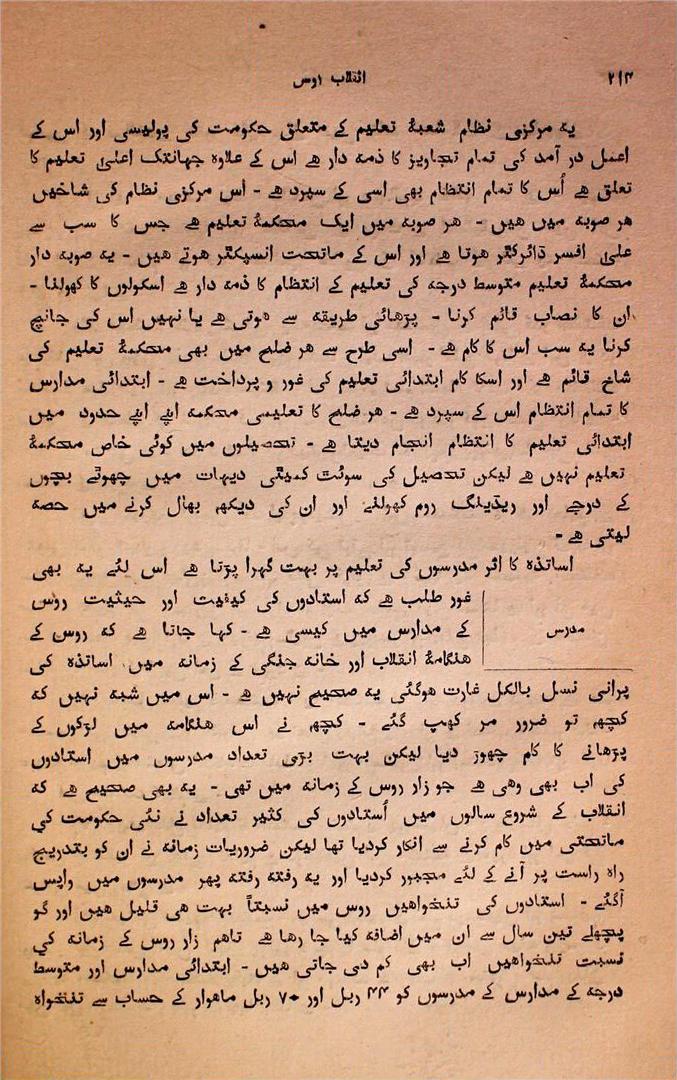 ۲۱۴ انقلاب روس
یہ مرکزی نظام شعبۂ تعلیم کے متعلق حکومت کی پولیسی اور اس کے
اعمل در آمد کی تمام تجاویز کا ذمہ دار ہے اس کے علاوہ جہانتک اعلیٰ تعلیم کا
تعلق ہے اُس کا تمام انتظام بھی اسی کے سپرد ہے - اس مرکزی نظام کی شاخیں
ہر صوبہ میں ہیں - ہر صوبہ میں ایک محکمۂ تعلیم ہے جس کا سب سے
علیٰ افسر ڈائرکٹر ہوتا ہے اور اس کے ماتحت انسپکٹر ہوتے ہیں - یہ صوبہ دار
محکمۂ تعلیم متوسط درجہ کی تعلیم کے انتظام کا ذمہ دار ہے اسکولوں کا کھولنا -
ان کا نصاب قائم کرنا - پڑھائی طریقہ سے ہوتی ہے یا نہیں اس کی جانچ
کرنا یہ سب اس کا کام ہے - اسی طرح سے ہر ضلع میں بھی محکمۂ تعلیم کی
شاخ قائم ہے اور اسکا کام ابتدائی تعلیم کی غور و پرداخت ہے - ابتدائی مدارس
کا تمام انتظام اس کے سپرد ہے - ہر ضلع کا تعلیمی محکمہ اپنے اپنے حدود میں
ابتدائی تعلیم کا انتظام انجام دیتا ہے - تحصیلوں میں کوئی خاص محکمۂ
تعلیم نہیں ہے لیکن تحصیل کی سوئٹ کمیٹی دیہات میں چھوٹے بچوں
کے درجے اور ریڈینگ روم کھولنے اور ان کی دیکھ بھال کرنے میں حصہ
لیتی ہے -
اساتذہ کا اثر مدرسوں کی تعلیم پر بہت گہرا پڑتا ہے اس لئے یہ بھی
غور طلب ہے کہ استادوں کی کیفیت اور حیثیت روس
مدرس
کے مدارس میں کیسی ہے - کہا جاتا ہے کہ روس کے
ہنگامۂ انقلاب اور خانہ جنگی کے زمانہ میں اساتذہ کی
پرانی نسل بالکل غارت ہوگئی یہ صحیح نہیں ہے - اس میں شبہ نہیں کہ
کچھ تو ضرور مر کھپ گئے - کچھ نے اس ہنگامہ میں لڑکوں کے
پڑھانے کا کام چھوڑ دیا لیکن بہت بڑی تعداد مدرسوں میں استادوں
کی اب بھی وہی ہے جو زار روس کے زمانہ میں تھی - یہ بھی صحیح ہے کہ
انقلاب کے شروع سالوں میں اُستادوں کی کثیر تعداد نے نئی حکومت کی
ماتحتی میں کام کرنے سے انکار کردیا تھا لیکن ضروریات زمانہ نے ان کو بتدریج
راہ راست پر آنے کے لئے مجبور کردیا اور یہ رفتہ رفتہ پھر مدرسوں میں واپس
آگئے - استادوں کی تنخواہیں روس میں نسبتاً بہت ہی قلیل ہیں اور گو
پچھلے تین سال سے ان میں اضافہ کیا جا رہا ہے تاہم زار روس کے زمانہ کی
نسبت تنخواہیں اب بھی کم دی جاتی ہیں - ابتدائی مدارس اور متوسط
درجہ کے مدارس کے مدرسوں کو ۴۴ ربل اور ۷۰ ربل ماہوار کے حساب سے تنخواہ